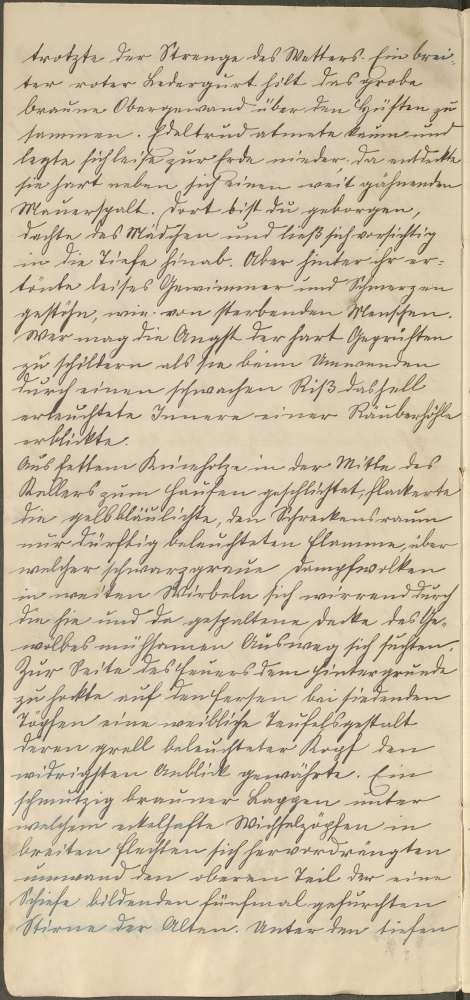 trotzte der Strenge des Wetters. Ein brei-
ter roter Ledergurt hilt das grobe
braune Obergewand über den Hüften zu
sammen. Edeltrud atmete kaum und
legte sich leise zur Erde nieder. Da entdeckte
sie hart neben sich einen weit gähnenden
Mauerspalt. Dort bist du geborgen,
dachte das Mädchen und ließ sich vorsichtig
in die Tiefe hinab. Aber hinter ihr er-
tönte leises Gewimmer und Schmerzen
gestöhn, wie von sterbenden Menschen.
Wer mag die Angst der hart Geprüften
zu schildern als sie beim Umwenden
durch einen schwachen Riß das hell
erleuchtete Innere einer Räuberhöhle
erblickte.
Aus fettem Kienholze in der Mitte des
Kellers zum Haufen geschlichtet, flackerte
die gelbbläulichte, den Schreckensraum
nur dürftig beleuchteten Flamme, über
welcher schwarzgraue Dampfwolken
in weiten Wirbeln sich wirrend durch
die hie und da gespaltene Decke des Ge-
wölbes mühsamen Ausweg sich suchten.
Zur Seite des Feuers dem Hintergrunde
zu hockte auf den Fersen bei siedenden
Töpfen eine weibliche Teufelsgestalt
deren grell beleuchteter Kopf den
widrigsten Anblick gewährte. Ein
schmutzig brauner Lappen unter
welchem ekelhafte Wichselzöpfen in
breiten Flechten sich hervordrängten
umwand den oberen Teil der eine
Schiefe bildenden fünfmal gefurchten
Stirne der Alten. Unter den tiefen